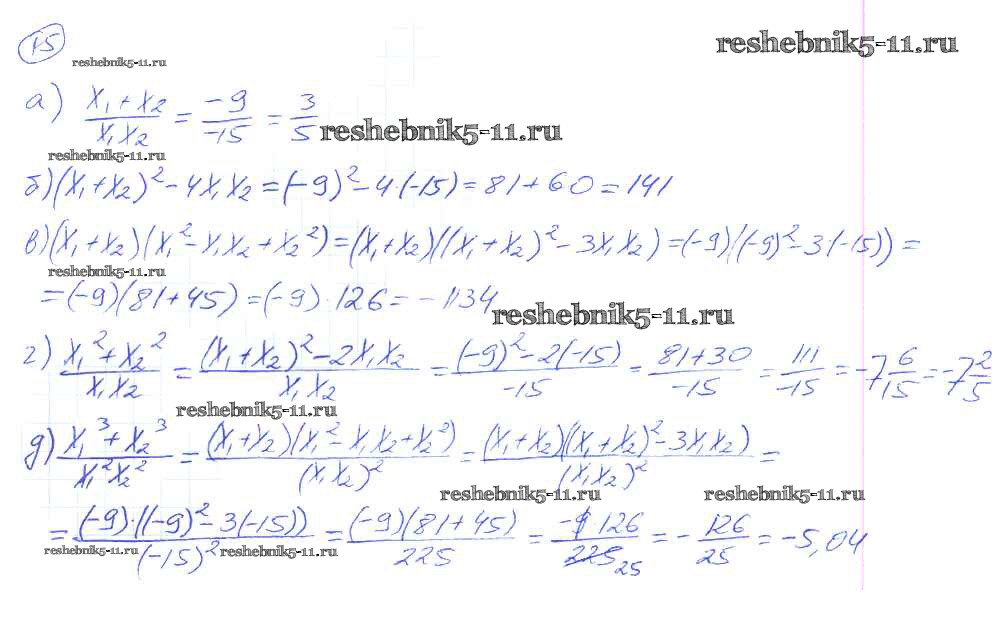 15
reshebnik5-11.ru
reshebnik5-11.ru
а) (x₁+x₂)/(x₁x₂) = (-9)/(-15) = 3/5
reshebnik5-11.ru
reshebnik5-11.ru
б) (x₁+x₂)²-4x₁x₂=(-9)²-4(-15)=81+60=141
в) (x₁+x₂)(x₁²-x₁x₂+x₂²)=(x₁+x₂)((x₁+x₂)²-3x₁x₂)=(-9)((-9)²-3(-15))=
reshebnik5-11.ru
=(-9)(81+45)=(-9)·126=-1134
reshebnik5-11.ru
г) (x₁²+x₂²)/(x₁x₂) = ((x₁+x₂)²-2x₁x₂)/(x₁x₂) = ((-9)²-2(-15))/(-15) = (81+30)/(-15) = 111/(-15) = -7 6/15 = -7 2/5
reshebnik5-11.ru
д) (x₁³+x₂³)/(x₁²x₂²) = ((x₁+x₂)(x₁²-x₁x₂+x₂²))/((x₁x₂)²) = ((x₁+x₂)((x₁+x₂)²-3x₁x₂))/((x₁x₂)²) =
reshebnik5-11.ru
reshebnik5-11.ru
= ((-9)·((-9)²-3(-15)))/((-15)²) = ((-9)(81+45))/225 = (-9·126)/225 25 = -126/25 = -5,04
reshebnik5-11.ru
reshebnik5-11.ru